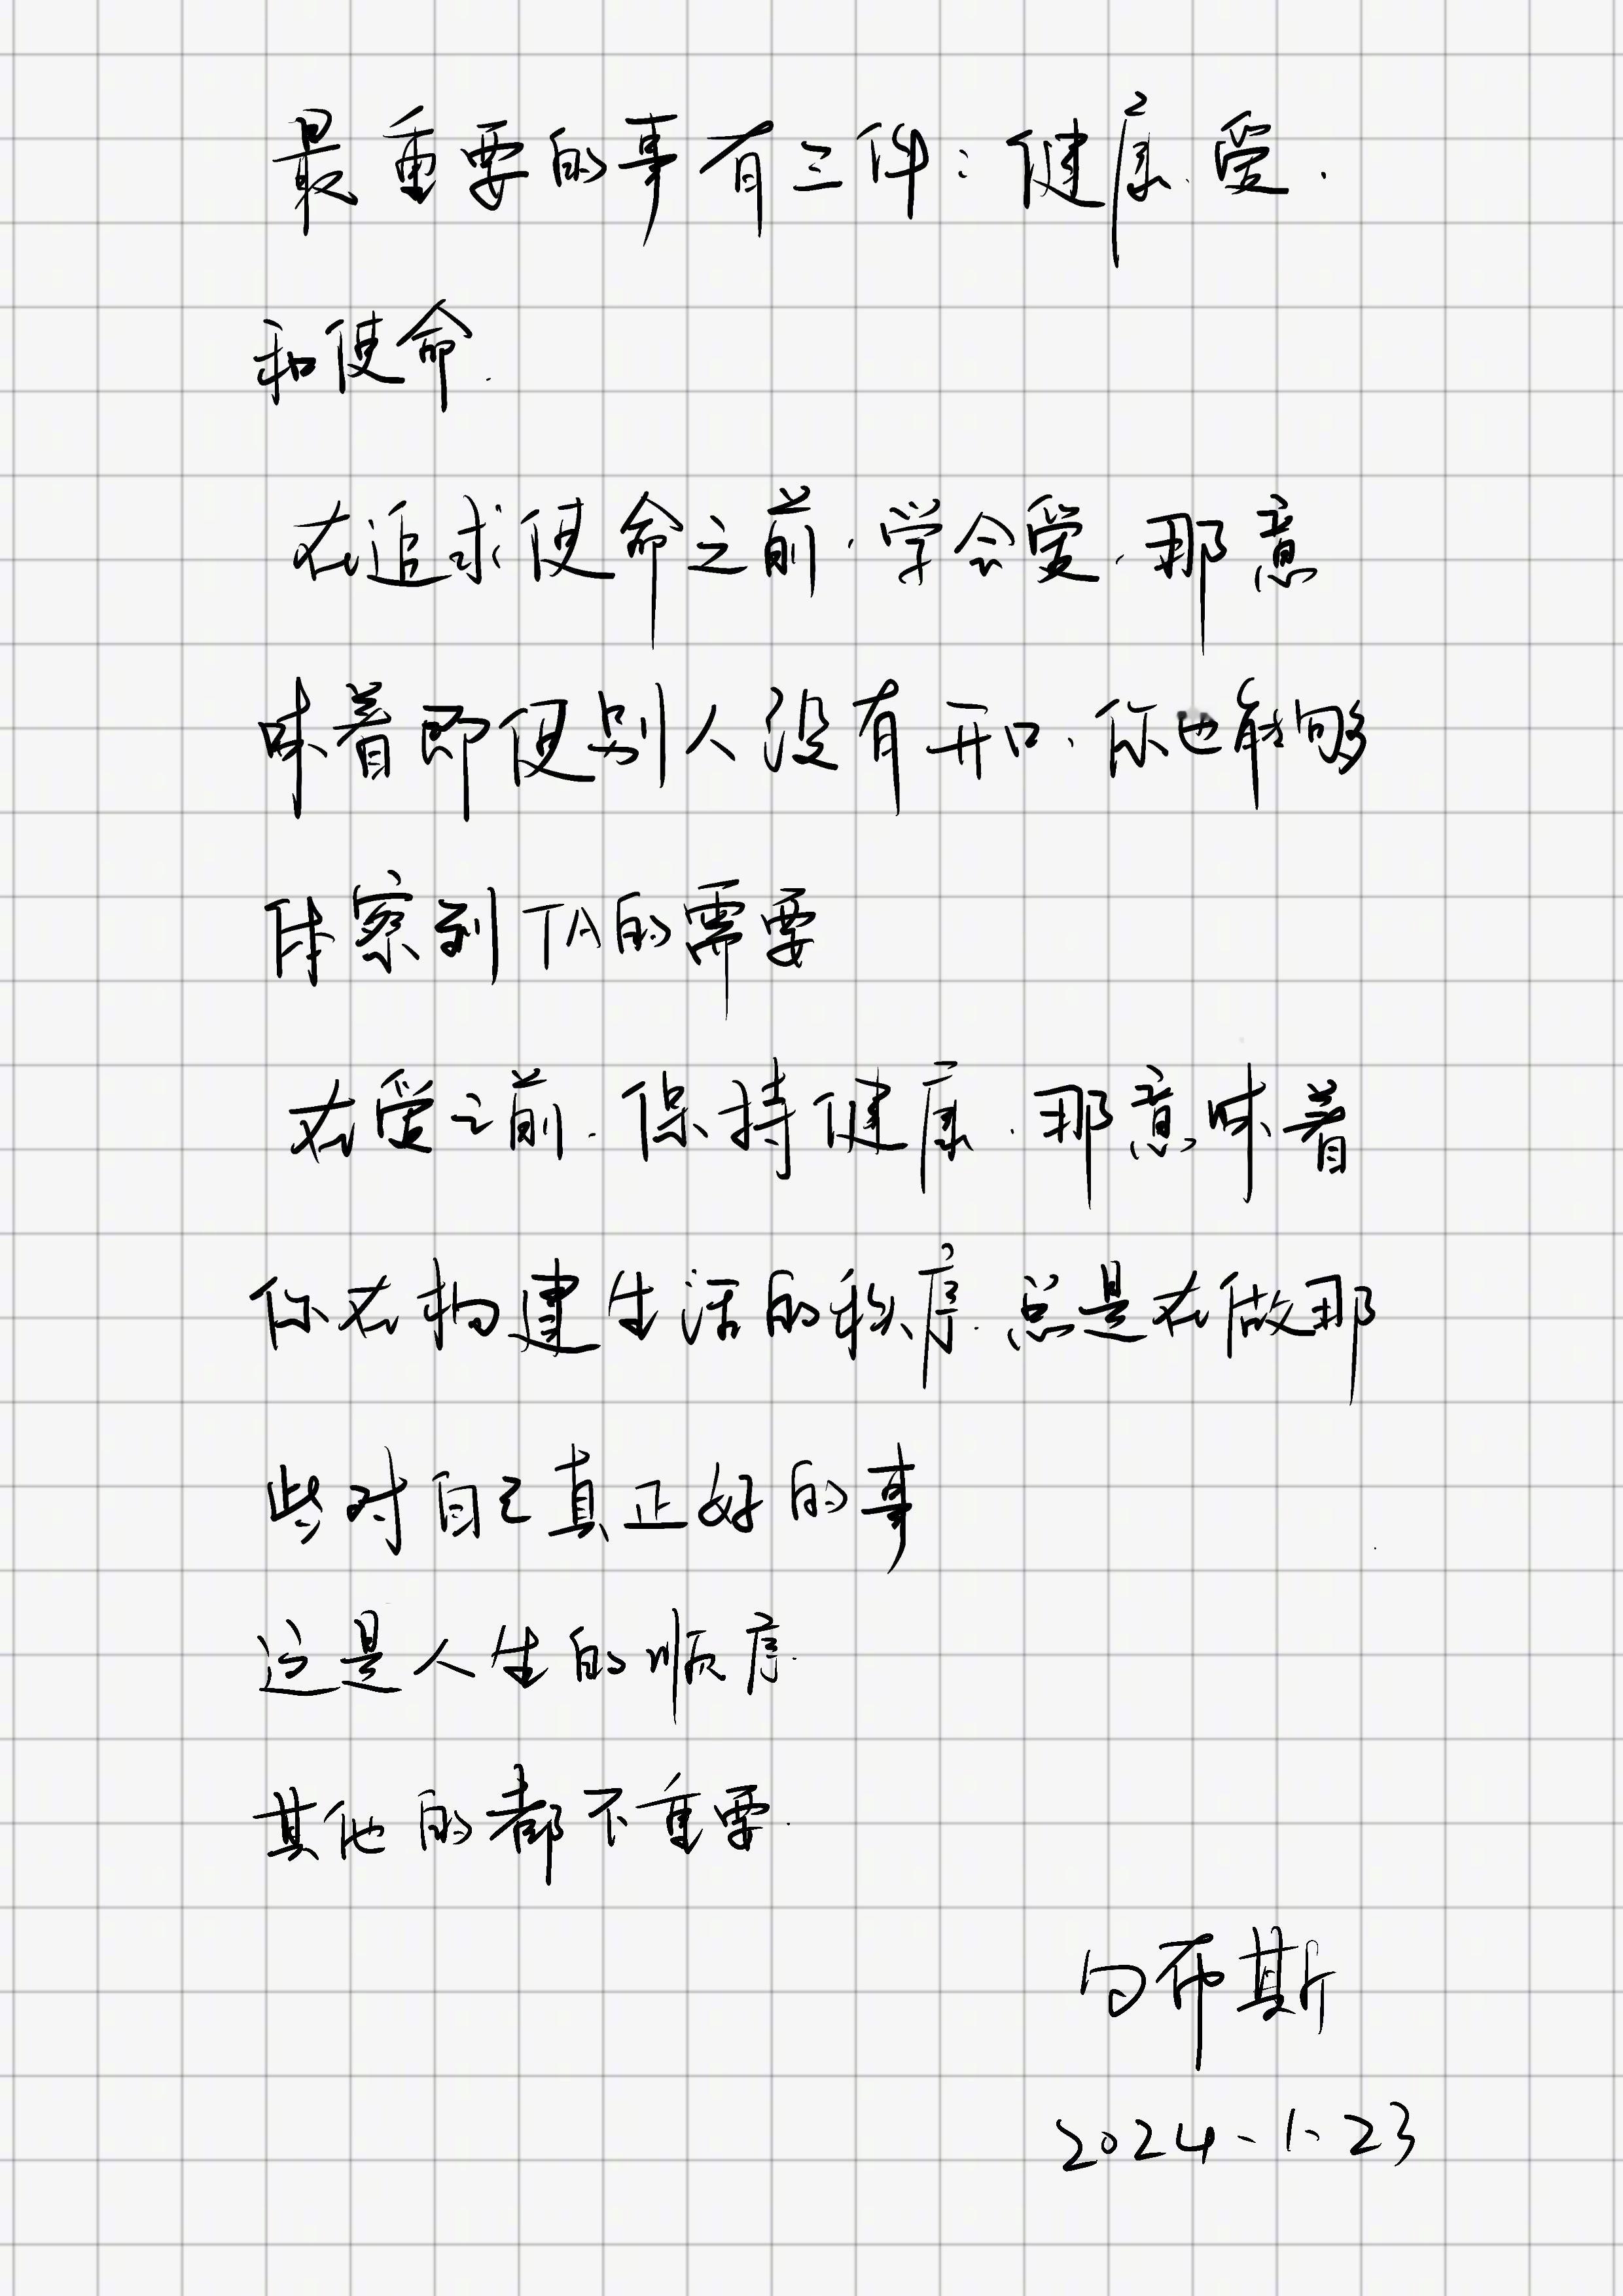 最重要的事有三件：健康、爱、
和使命.
在追求使命之前，学会爱，那意
味着即便别人没有开口，你也能够
体察到TA的需要
在爱之前，保持健康，那意味着
你在构建生活的秩序，总是在做那
些对自己真正好的事
这是人生的顺序.
其他的都不重要.
白布斯
2024.1.23